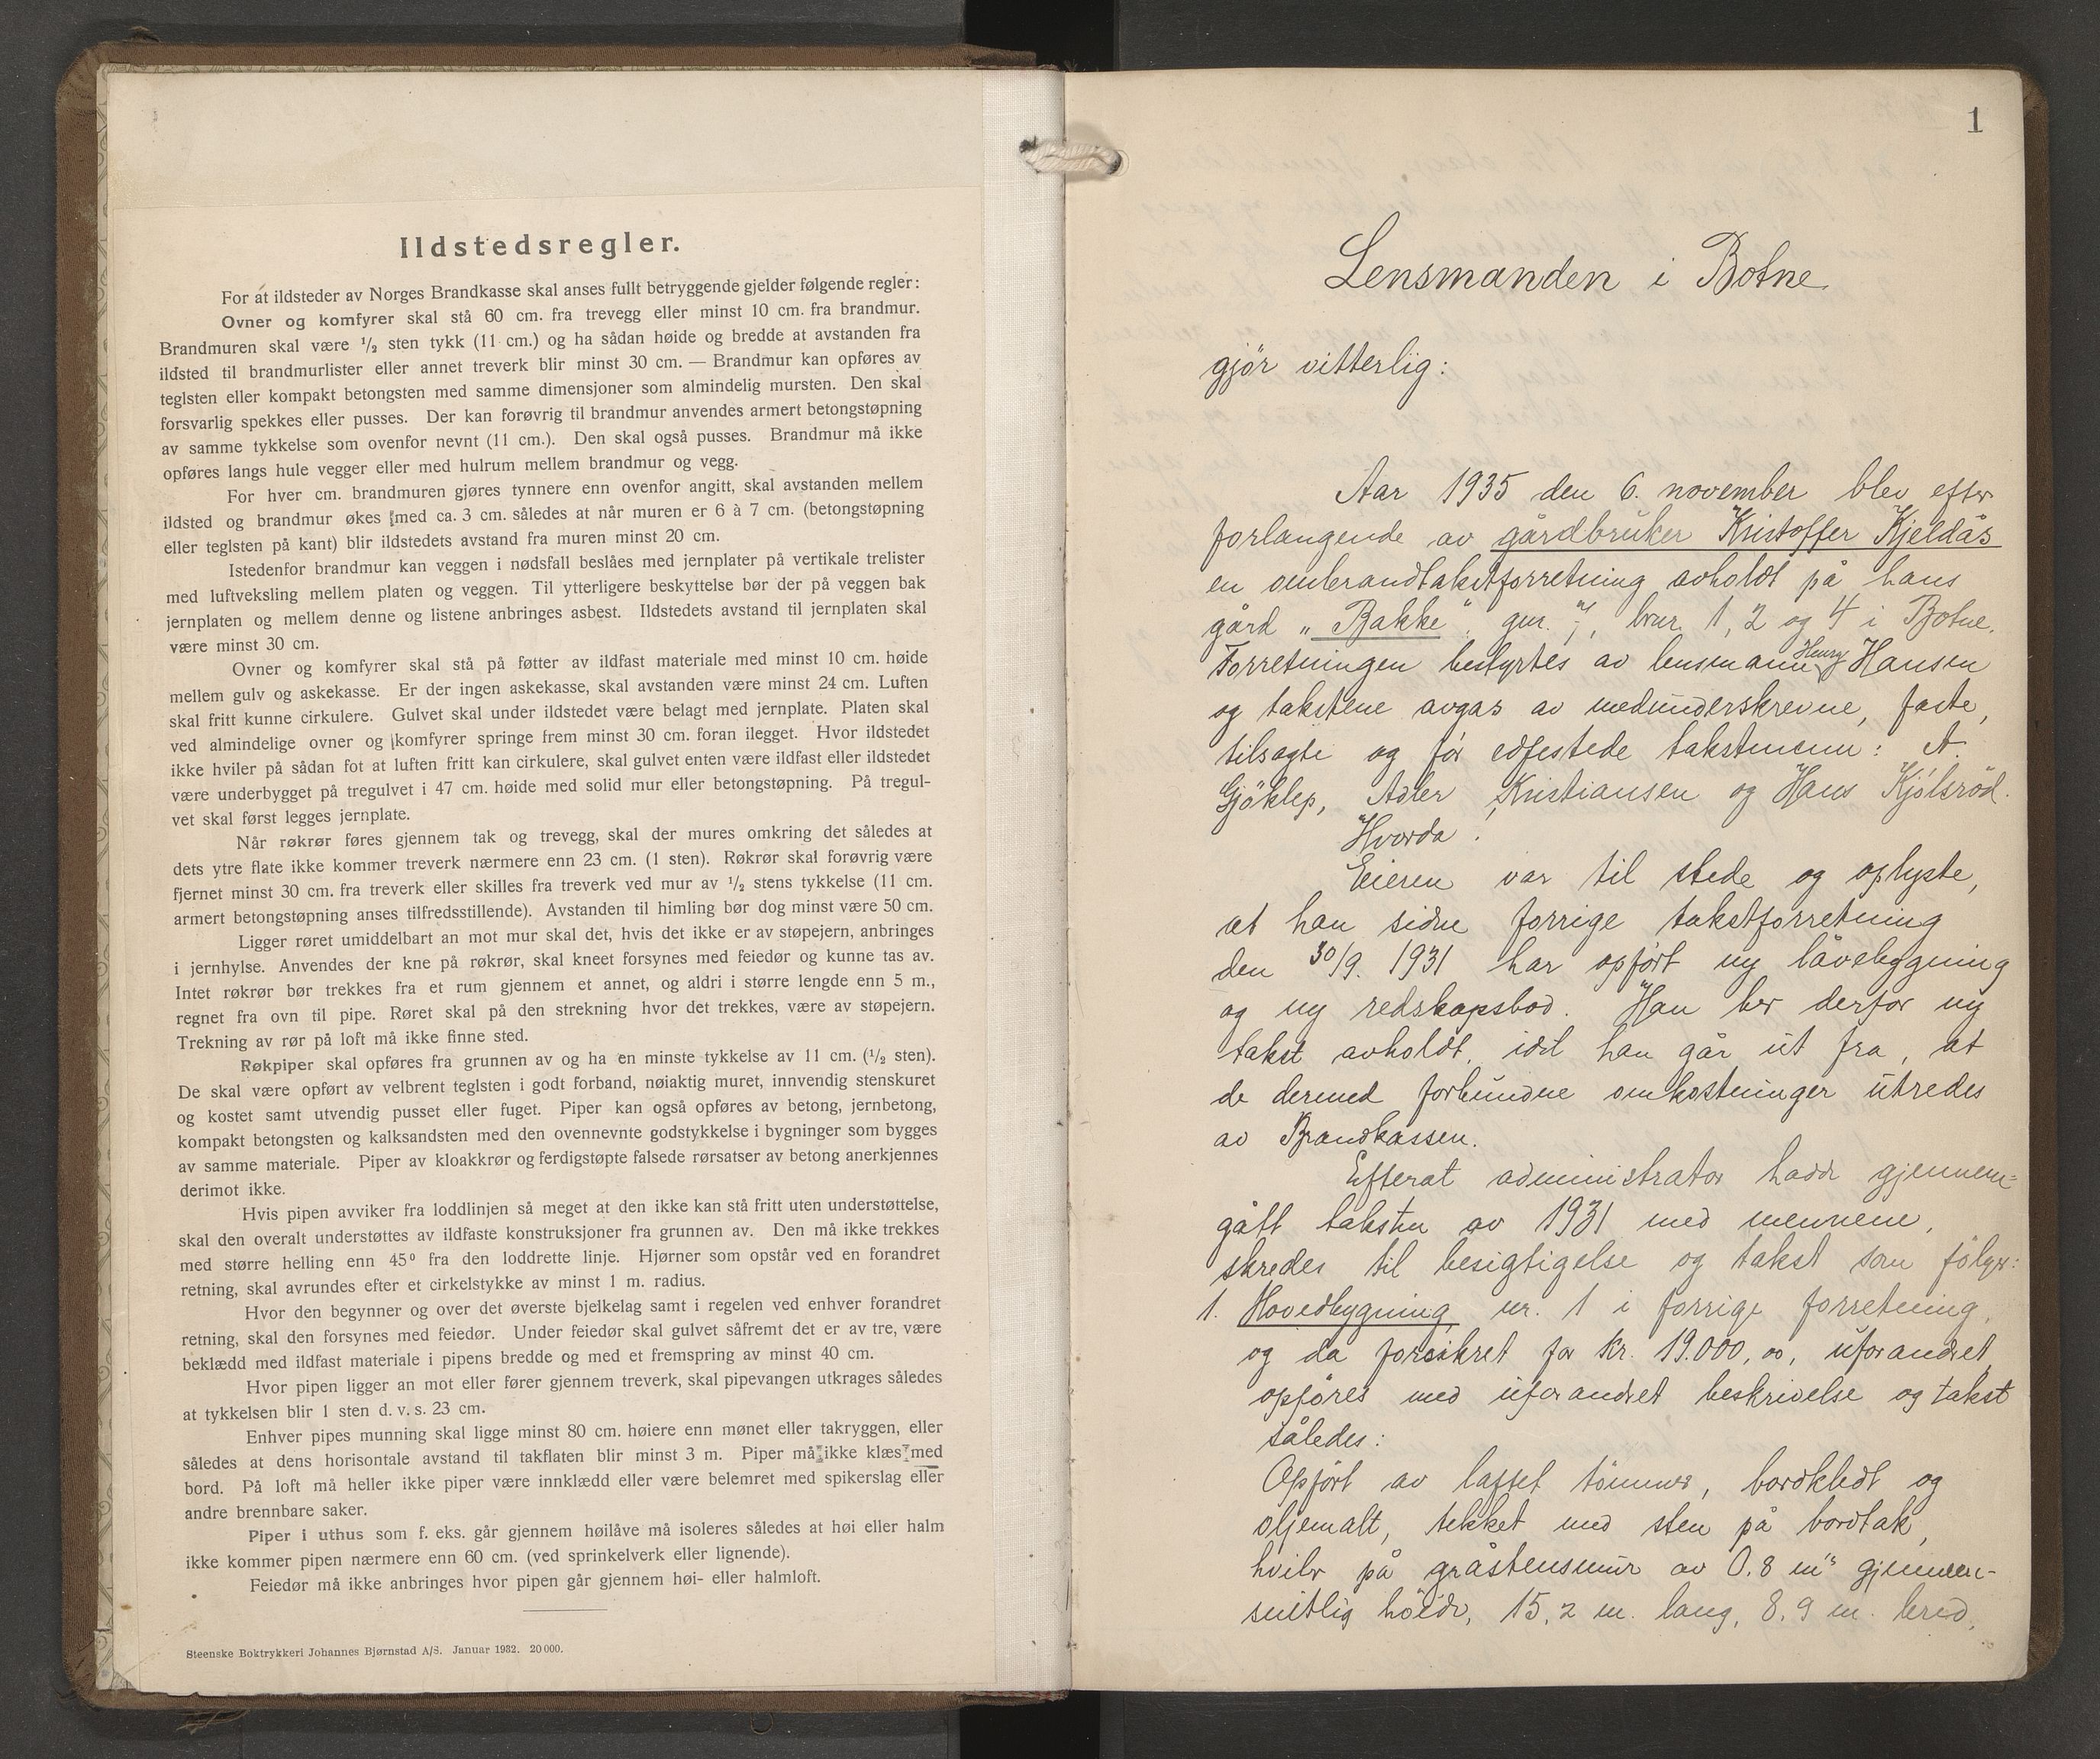 Ildstedsregler.
For at ildsteder av Norges Brandkasse skal anses fullt betryggende gjelder følgende regler:
Ovner og komfyrer skal stå 60 cm. fra trevegg eller minst 10 cm. fra brandmur.
Brandmuren skal være 1/2 sten tykk (11 cm.) og ha sådan høide og bredde at avstanden fra
ildsted til brandmurlister eller annet treverk blir minst 30 cm. — Brandmur kan opføres av
teglsten eller kompakt betongsten med samme dimensjoner som almindelig mursten. Den skal
forsvarlig spekkes eller pusses. Der kan forøvrig til brandmur anvendes armert betongstøpning
av samme tykkelse som ovenfor nevnt (11 cm.). Den skal også pusses. Brandmur må ikke
opføres langs hule vegger eller med hulrum mellem brandmur og vegg.
For hver cm. brandmuren gjøres tynnere enn ovenfor angitt, skal avstanden mellem
ildsted og brandmur økes med ca. 3 cm. således at når muren er 6 à 7 cm. (betongstøpning
eller teglsten på kant) blir ildstedets avstand fra muren minst 20 cm.
Istedenfor brandmur kan veggen i nødsfall beslåes med jernplater på vertikale trelister
med luftveksling mellem platen og veggen. Til ytterligere beskyttelse bør der på veggen bak
jernplaten og mellem denne og listene anbringes asbest. Ildstedets avstand til jernplaten skal
være minst 30 cm.
Ovner og komfyrer skal stå på føtter av ildfast materiale med minst 10 cm. høide
mellem gulv og askekasse. Er der ingen askekasse, skal avstanden være minst 24 cm. Luften
skal fritt kunne cirkulere. Gulvet skal under ildstedet være belagt med jernplate. Platen skal
ved almindelige ovner og komfyrer springe frem minst 30 cm. foran ilegget. Hvor ildstedet
ikke hviler på sådan fot at luften fritt kan cirkulere, skal gulvet enten være ildfast eller ildstedet
være underbygget på tregulvet i 47 cm. høide med solid mur eller betongstøpning. På tregul-
vet skal først legges jernplate.
Når røkrør føres gjennem tak og trevegg, skal der mures omkring det således at
dets ytre flate ikke kommer treverk nærmere enn 23 cm. (1 sten). Røkrør skal forøvrig være
fjernet minst 30 cm. fra treverk eller skilles fra treverk ved mur av 1/2 stens tykkelse (11 cm.
armert betongstøpning anses tilfredsstillende). Avstanden til himling bør dog minst være 50 cm.
Ligger røret umiddelbart an mot mur skal det, hvis det ikke er av støpejern, anbringes
i jernhylse. Anvendes der kne på røkrør, skal kneet forsynes med feiedør og kunne tas av.
Intet røkrør bør trekkes fra et rum gjennem et annet, og aldri i større lengde enn 5 m.,
regnet fra ovn til pipe. Røret skal på den strekning hvor det trekkes, være av støpejern.
Trekning av rør på loft må ikke finne sted.
Røkpiper skal opføres fra grunnen av og ha en minste tykkelse av 11 cm. (1/2 sten).
De skal være opført av velbrent teglsten i godt forband, nøiaktig muret, innvendig stenskuret
og kostet samt utvendig pusset eller fuget. Piper kan også opføres av betong, jernbetong,
kompakt betongsten og kalksandsten med den ovennevnte godstykkelse i bygninger som bygges
av samme materiale. Piper av kloakkrør og ferdigstøpte falsede rørsatser av betong anerkjennes
derimot ikke.
Hvis pipen avviker fra loddlinjen så meget at den ikke kan stå fritt uten understøttelse,
skal den overalt understøttes av ildfaste konstruksjoner fra grunnen av. Den må ikke trekkes
med større helling enn 45° fra den loddrette linje. Hjørner som opstår ved en forandret
retning, skal avrundes efter et cirkelstykke av minst 1 m. radius.
Hvor den begynner og over det øverste bjelkelag samt i regelen ved enhver forandret
retning, skal den forsynes med feiedør. Under feiedør skal gulvet såfremt det er av tre, være
beklædd med ildfast materiale i pipens bredde og med et fremspring av minst 40 cm.
Hvor pipen ligger an mot eller fører gjennem treverk, skal pipevangen utkrages således
at tykkelsen blir 1 sten d. v. s. 23 cm.
Enhver pipes munning skal ligge minst 80 cm. høiere enn mønet eller takryggen, eller
således at dens horisontale avstand til takflaten blir minst 3 m. Piper må ikke klæs med
bord. På loft må heller ikke piper være innklædd eller være belemret med spikerslag eller
andre brennbare saker.
Piper i uthus som f. eks. går gjennem høilåve må isoleres således at høi eller halm
ikke kommer pipen nærmere enn 60 cm. (ved sprinkelverk eller lignende).
Feiedør må ikke anbringes hvor pipen går gjennem høi- eller halmloft.
Steenske Boktrykkeri Johannes Bjørnstad A/S. Januar 1932. 20 000.
1
Lensmanden i Botne
gjör vitterlig:
Aar 1935 den 6. november blev efter
forlangende av gårdbruker Kristoffer Kjeldås
en ombrandtakstforretning avholdt på hans
gård „Bakke“, gnr. 7, bnr. 1, 2 og 4 i Botne.
Forretningen bestyrtes av lensmann Henry Hansen
og takstene avgas av medunderskrevne, faste,
tilsagte og før edfestede takstmenn: A.
Gjöklep, Adler Kristiansen og Hans Kjölsröd.
Hvorda:
Eieren var til stede og oplyste,
at han siden forrige takstforretning
den 30/9. 1931 har opfört ny låvebygning
og ny redskapsbod. Han ber derfor ny
takst avholdt, idet han går ut fra, at
de dermed forbundne omkostninger utredes
av Brandkassen.
Efterat administrator hadde gjennem-
gått taksten av 1931 med mennene,
skredes til besigtigelse og takst som fölger:
1. Hovedbygning nr. 1 i forrige forretning,
og da forsikret for kr. 19.000,00, uforandret,
opföres med uforandret beskrivelse og takst
således:
Opfört av laftet tömmer, bordkledt og
oljemalt, tekket med sten på bordtak,
hviler på gråstensmur av 0.8 m's gjennem-
snitlig höide, 15,2 m. lang, 8,9 m. bred,